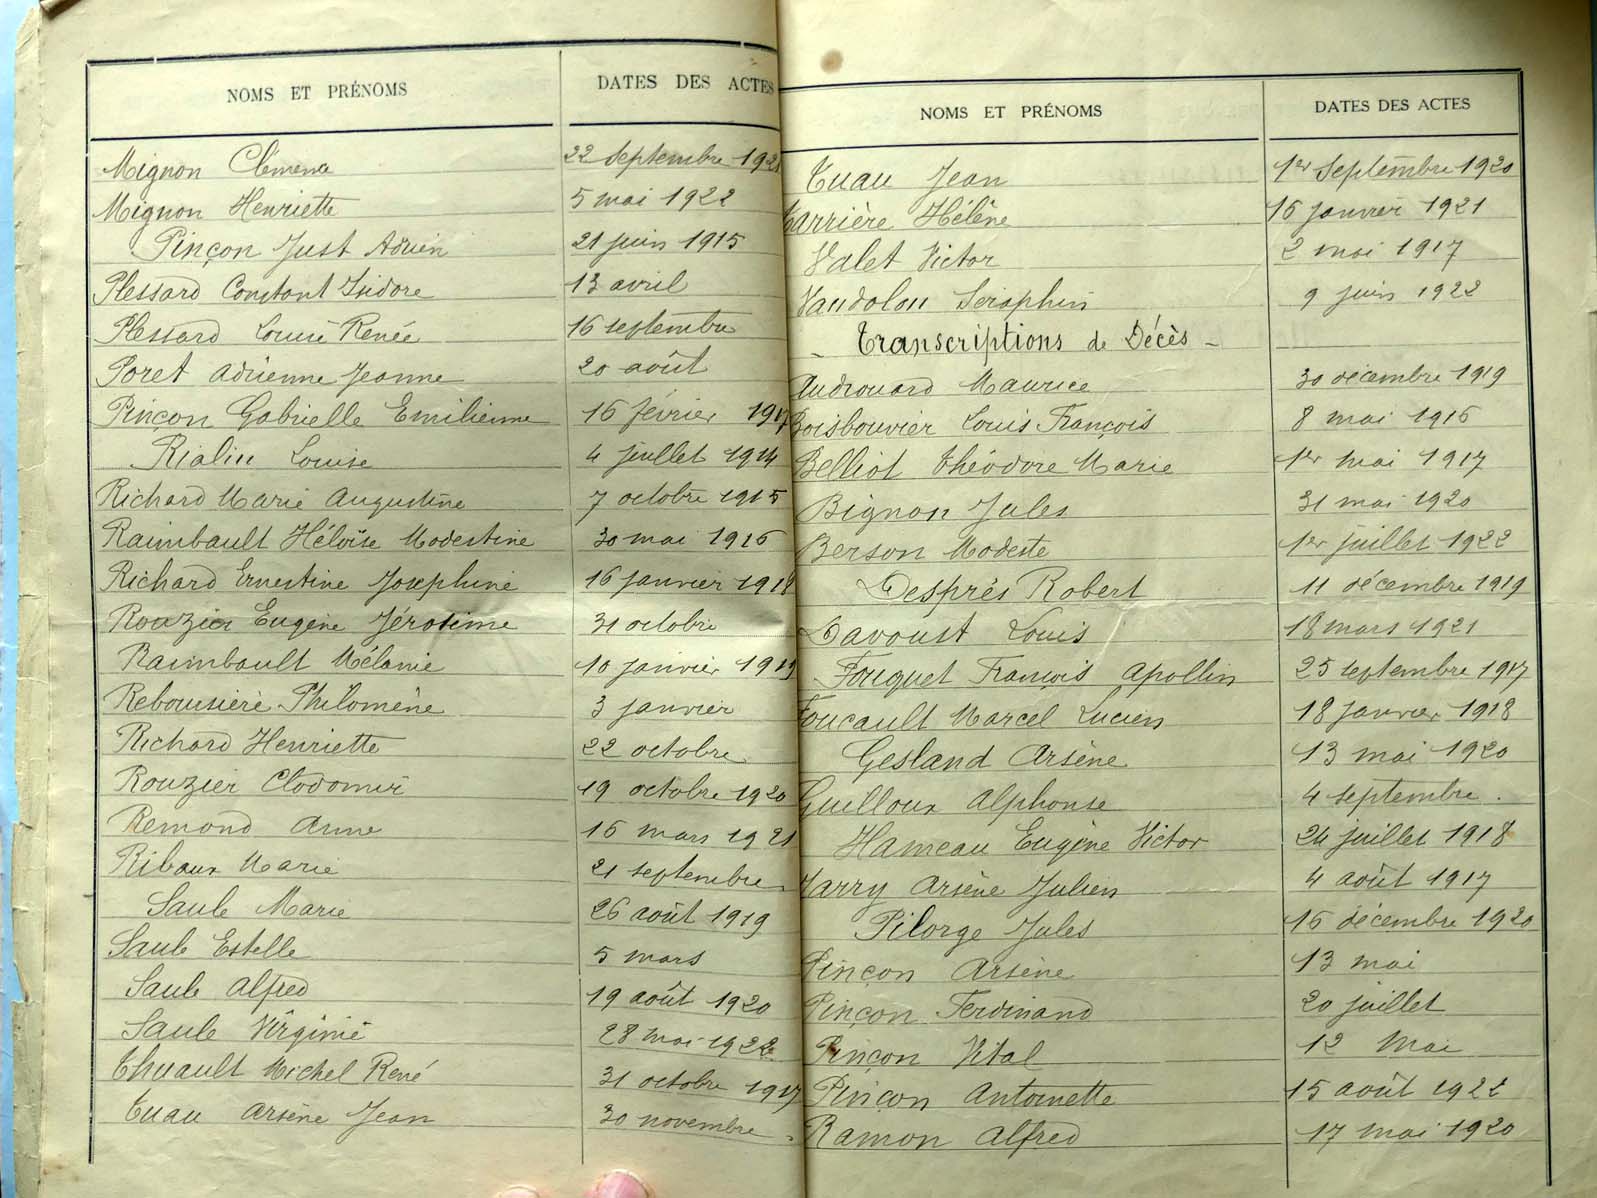 NOMS ET PRÉNOMS DATES DES ACTES
Mignon Clémence 22 septembre 1921
Mignon Henriette 5 mai 1922
Pinçon Just Adrien 21 juin 1915
Plessard Constant Isidore 13 avril
Plessard Louise Renée 16 septembre
Poret Adrienne Jeanne 20 août
Pinçon Gabrielle Emilienne 16 février 1917
Rialin Louise 4 juillet 1914
Richard Marie Augustine 7 octobre 1915
Raimbault Héloïse Modestine 30 mai 1916
Richard Ernestine Joséphine 16 janvier 1918
Rouzier Eugène Jérosime 31 octobre
Raimbault Mélanie 10 janvier 1919
Reboursière Philomène 3 janvier
Richard Henriette 22 octobre
Rouzier Clodomir 19 octobre 1920
Remond Anne 16 mars 1921
Ribaux Marie 21 septembre
Saule Marie 26 août 1919
Saule Estelle 5 mars
Saule Alfred 19 août 1920
Saule Virginie 28 mai 1922
Thuault Michel René 31 octobre 1917
Tuau Arsène Jean 30 novembre
NOMS ET PRÉNOMS DATES DES ACTES
Tuau Jean 1er Septembre 1920
Tarrière Hélène 16 janvier 1921
Valet Victor 2 mai 1917
Vaudolon Séraphin 9 juin 1922
- Transcriptions de Décès -
Audrouard Maurice 30 décembre 1919
Boisbouvier Louis François 8 mai 1916
Belliot Théodore Marie 1er mai 1917
Bignon Jules 31 mai 1920
Berson Modeste 1er juillet 1922
Desprès Robert 11 décembre 1919
Davoust Louis 18 mars 1921
Fouquet François Apollin 25 septembre 1917
Foucault Marcel Lucien 18 janvier 1918
Gesland Arsène 13 mai 1920
Guilloux Alphonse 4 septembre.
Hameau Eugène Victor 24 juillet 1918
Jarry Arsène Julien 4 août 1917
Pilorge Jules 16 décembre 1920
Pinçon Arsène 13 mai
Pinçon Ferdinand 20 juillet
Pinçon Vital 12 Mai
Pinçon Antoinette 15 août 1922
Ramon Alfred 17 mai 1920